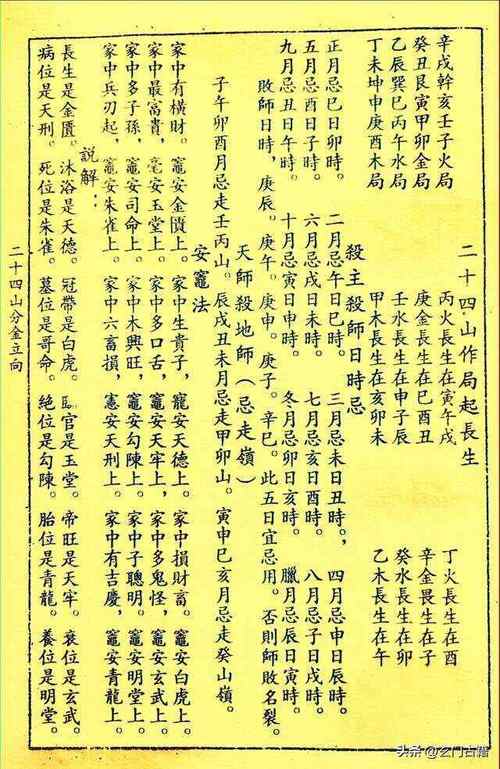 二十四山作局起長生
辛戌幹亥壬子火局
癸丑艮寅甲卯金局
乙辰巽巳丙午水局
丁未坤申庚酉木局
丙火長生在寅午戌
庚金長生在巳酉丑
壬水長生在申子辰
甲木長生在亥卯未
丁火長生在酉
辛金畏生在子
癸水長生在卯
乙木長生在午
殺主殺師日時忌
正月忌巳日卯時。二月忌午日巳時。三月忌未日丑時。，四月忌申日辰時。
五月忌酉日子時。六月忌戌日未時。七月忌亥日酉時。八月忌子日戌時。
九月忌丑日午時。十月忌寅日申時。冬月忌卯日亥時。臘月忌辰日寅時。
敗師日時，庚辰。庚午。庚申。庚子。辛巳。此五日宜忌用。否則師敗名裂。
天師殺地師（忌走嶺）
子午卯酉月忌走壬丙山。辰戌丑未月忌走甲卯山。寅申巳亥月忌走癸山嶺。
安竈法
家中有橫財。竈安金匱上。家中生貴子，寵安天德上。家中損財畜。竈安白虎上。
家中最富貴，亳安玉堂上。家中多口舌，竈安天牢上，家中多鬼怪，竈安玄武上。
家中多子孫，竈安司命上。家中木興旺，竈安勾陳上。家中子聰明。竈安明堂上。
家中兵刃起，竈安朱雀上。家中六畜損，憲安天刑上。家中有吉慶，竈安青龍上。
說解：
長生是金匱。沐浴是天德。冠帶是白虎。官是玉堂。帝旺是天牢。衰位是玄武。
病位是天刑。死位是朱雀。墓位是哥命。絕位是勾陳。胎位是青龍。養位是明堂。
二十四山分金立向
头条@玄门古籍